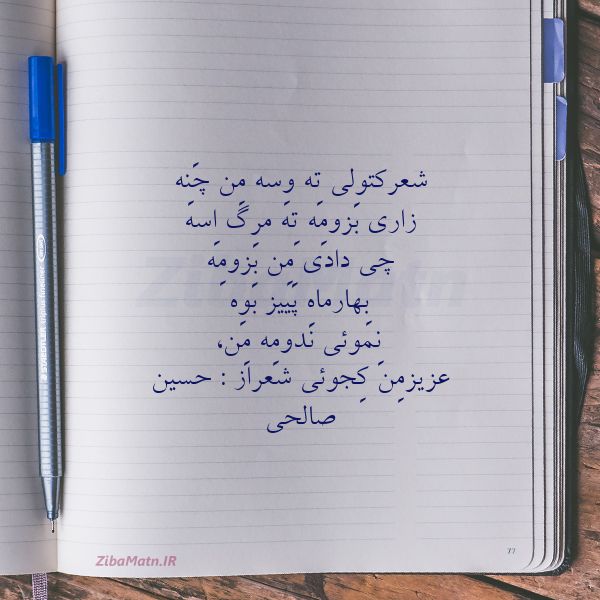 شعرکتولی ته وسه مِن چَنه
زاری بَزومَه تهَ مرگَ اسهَ
چی دادَی مَِن بَزومِهَ
بِهارماه پَییز بَوِه
نِموئی نَدومِه مِن،
عزیزمِنَ کِجوئی شعراز : حسین
صالحی
ZibaMatn
ZibaMatn.IR
77